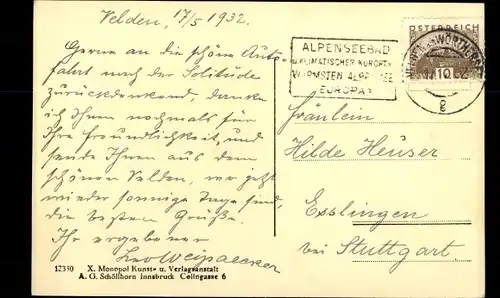 Velden, 17/5 1932.
Gerne an die schöne Auto-
fahrt nach der Solitude
zurückdenkend, danke
ich Ihnen nochmals für
Ihre Freundlichkeit, und
sende Ihnen aus dem
schönen Velden, wo jetzt
wieder sonnige Tage sind,
die besten Grüße.
Ihr ergebener
Leo
12350 X. Monopol Kunst- u. Verlagsanstalt
A. G. Schöllhorn Innsbruck Colingasse 6
ALPENSEEBAD
KLIMATISCHER KURORT
WÄRMSTEN ALPENSEE
EUROPAS
ÖSTERREICH
10
Fräulein
Hilde Heuser
Esslingen
bei Stuttgart